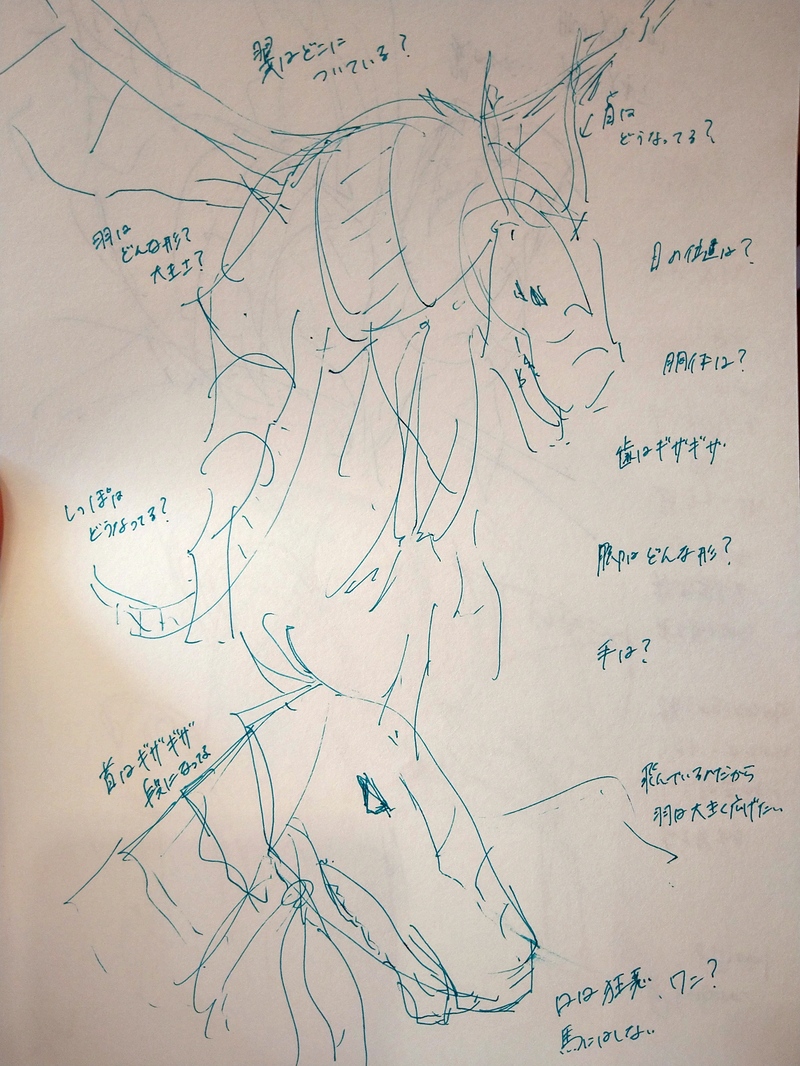 翼はどこに
ついている?
首は
どうなってる?
羽は
どんな形?
大きさ?
目の位置は?
胴体は?
歯はギザギザ
しっぽは
どうなってる?
脚はどんな形?
手は?
首はギザギザ
段になってる
飛んでいるんだから
羽は大きく広げたい
口は狂悪、ワニ?
馬にはしない